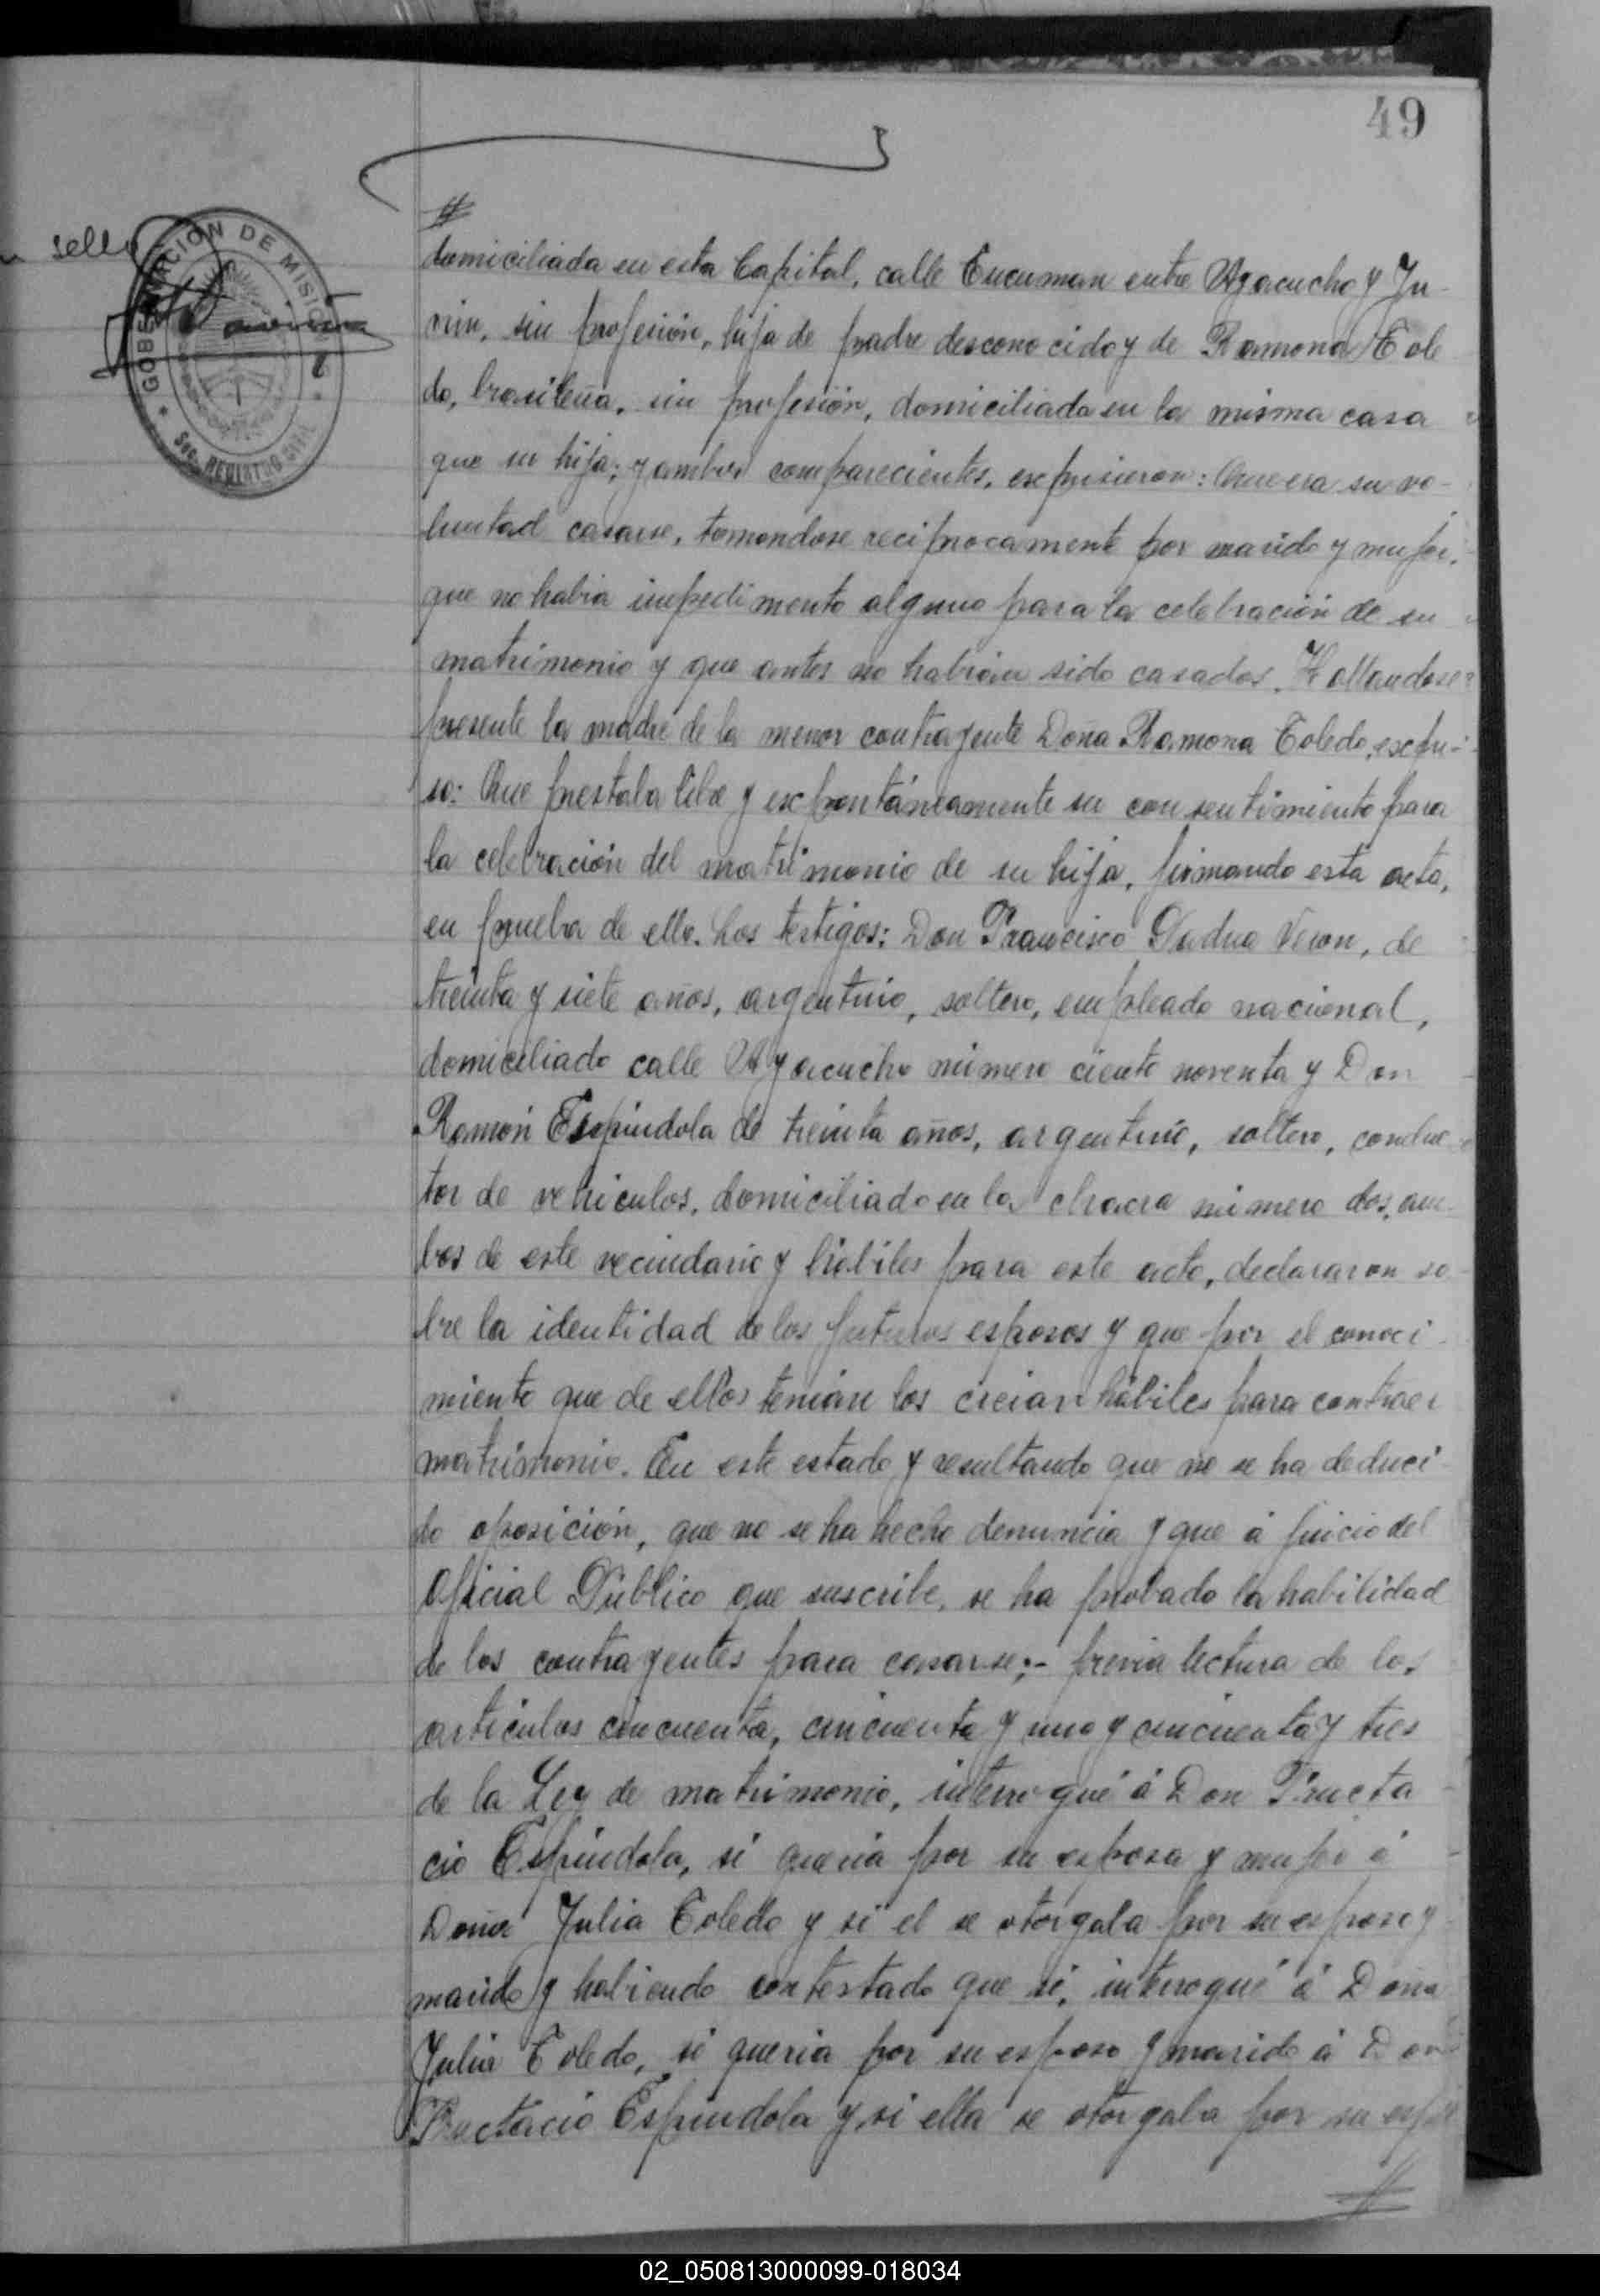 49
sello
GOBERNACION DE MISIONES
Sec. REGISTRO CIVIL
domiciliada en esta Capital, calle Tucuman entre Ayacucho y Ju-
nin, sin profesión, hija de padre desconocido y de Ramona Tole
do, brasileña, sin profesión, domiciliada en la misma casa
que su hija; y ambos comparecientes, expusieron: Que era su vo-
luntad casarse, tomandose reciprocamente por marido y mujer,
que no habia impedimento alguno para la celebración de su
matrimonio y que antes no habian sido casados. Hallandose
presente la madre de la menor contrayente Doña Ramona Toledo, expu-
so: Que prestaba libre y expontáneamente su consentimiento para
la celebración del matrimonio de su hija, firmando esta acta,
en prueba de ello. Los testigos: Don Francisco Padua Veron, de
treinta y siete años, argentino, soltero, empleado nacional,
domiciliado calle Ayacucho número ciento noventa y Don
Ramón Espindola de treinta años, argentino, soltero, conduc-
tor de vehiculos, domiciliado en la chacra número dos, am-
bos de este vecindario y hábiles para este acto, declararon so-
bre la identidad de los futuros esposos y que por el conoci-
miento que de ellos tenian los creian hábiles para contraer
matrimonio. En este estado y resultando que no se ha deduci-
do oposición, que no se ha hecho denuncia y que á juicio del
Oficial Público que suscribe, se ha probado la habilidad
de los contrayentes para casarse;- previa lectura de los
articulos cincuenta, cincuenta y uno y cincuenta y tres
de la Ley de matrimonio, interrogué á Don Fructa
cio Espindola, si queria por su esposa y mujer á
Doña Julia Toledo y si el se otorgaba por su esposo y
marido y habiendo contestado que si, interrogué á Doña
Julia Toledo, si queria por su esposo y marido á Don
Fructacio Espindola y si ella se otorgaba por su espo
02_050813000099-018034